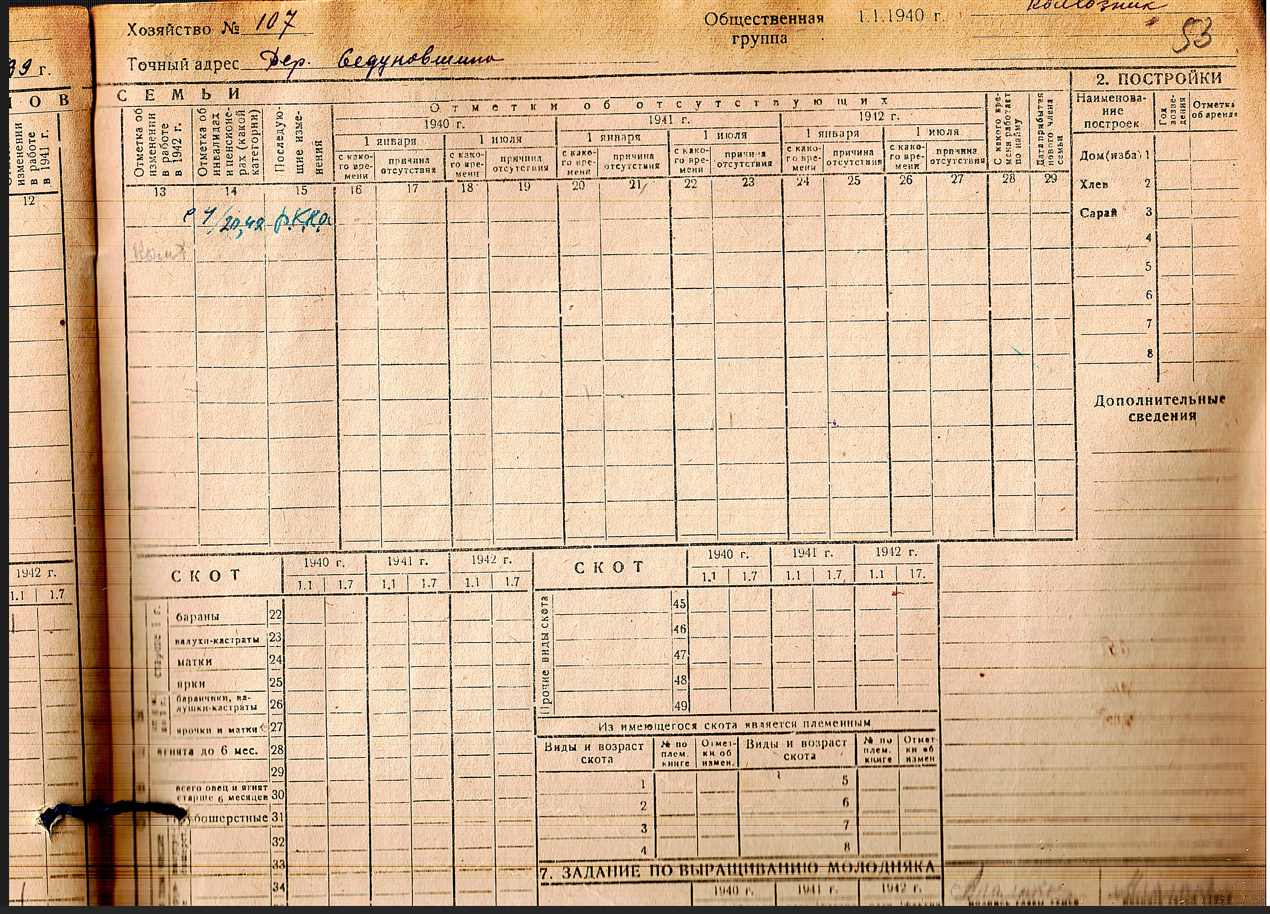 Хозяйство № 107
Общественная группа 1.1.1940 г. колхозник
53
39 г.
Точный адрес Дер. Седуновщина
СЕМЬИ
Отметки об отсутствующих
1940 г. 1941 г. 1942 г.
1 января 1 июля 1 января 1 июля 1 января 1 июля
изменении в работе в 1941 г.
Отметка об изменении в работе в 1942 г.
Отметка об инвалидах и пенсионерах (какой категории)
Последующие изменения
с какого времени причина отсутствия с какого времени причина отсутствия с какого времени причина отсутствия с какого времени причина отсутствия с какого времени причина отсутствия с какого времени причина отсутствия
С какого времени работает по найму
Дата прибытия нового члена семьи
12 13 14 15 16 17 18 19 20 21 22 23 24 25 26 27 28 29
Р.К.К.А.
2. ПОСТРОЙКИ
Наименование построек Год возведения Отметка об аренде
Дом (изба) 1
Хлев 2
Сарай 3
4
5
6
7
8
Дополнительные сведения
1942 г.
1.1 1.7
СКОТ 1940 г. 1941 г. 1942 г.
1.1 1.7 1.1 1.7 1.1 1.7
старше 1 г.
бараны 22
валухи-кастраты 23
матки 24
ярки 25
баранчики, валушки-кастраты 26
ярочки и матки 27
ягнята до 6 мес. 28
29
всего овец и ягнят старше 6 месяцев 30
грубошерстные 31
32
33
34
СКОТ 1940 г. 1941 г. 1942 г.
1.1 1.7 1.1 1.7 1.1 17.
Прочие виды скота
45
46
47
48
49
Из имеющегося скота является племенным
Виды и возраст скота № по плем. книге Отметки об измен. Виды и возраст скота № по плем. книге Отметки об измен
1 5
2 6
3 7
4 8
7. ЗАДАНИЕ ПО ВЫРАЩИВАНИЮ МОЛОДНЯКА
1940 г. 1941 г. 1942 г.